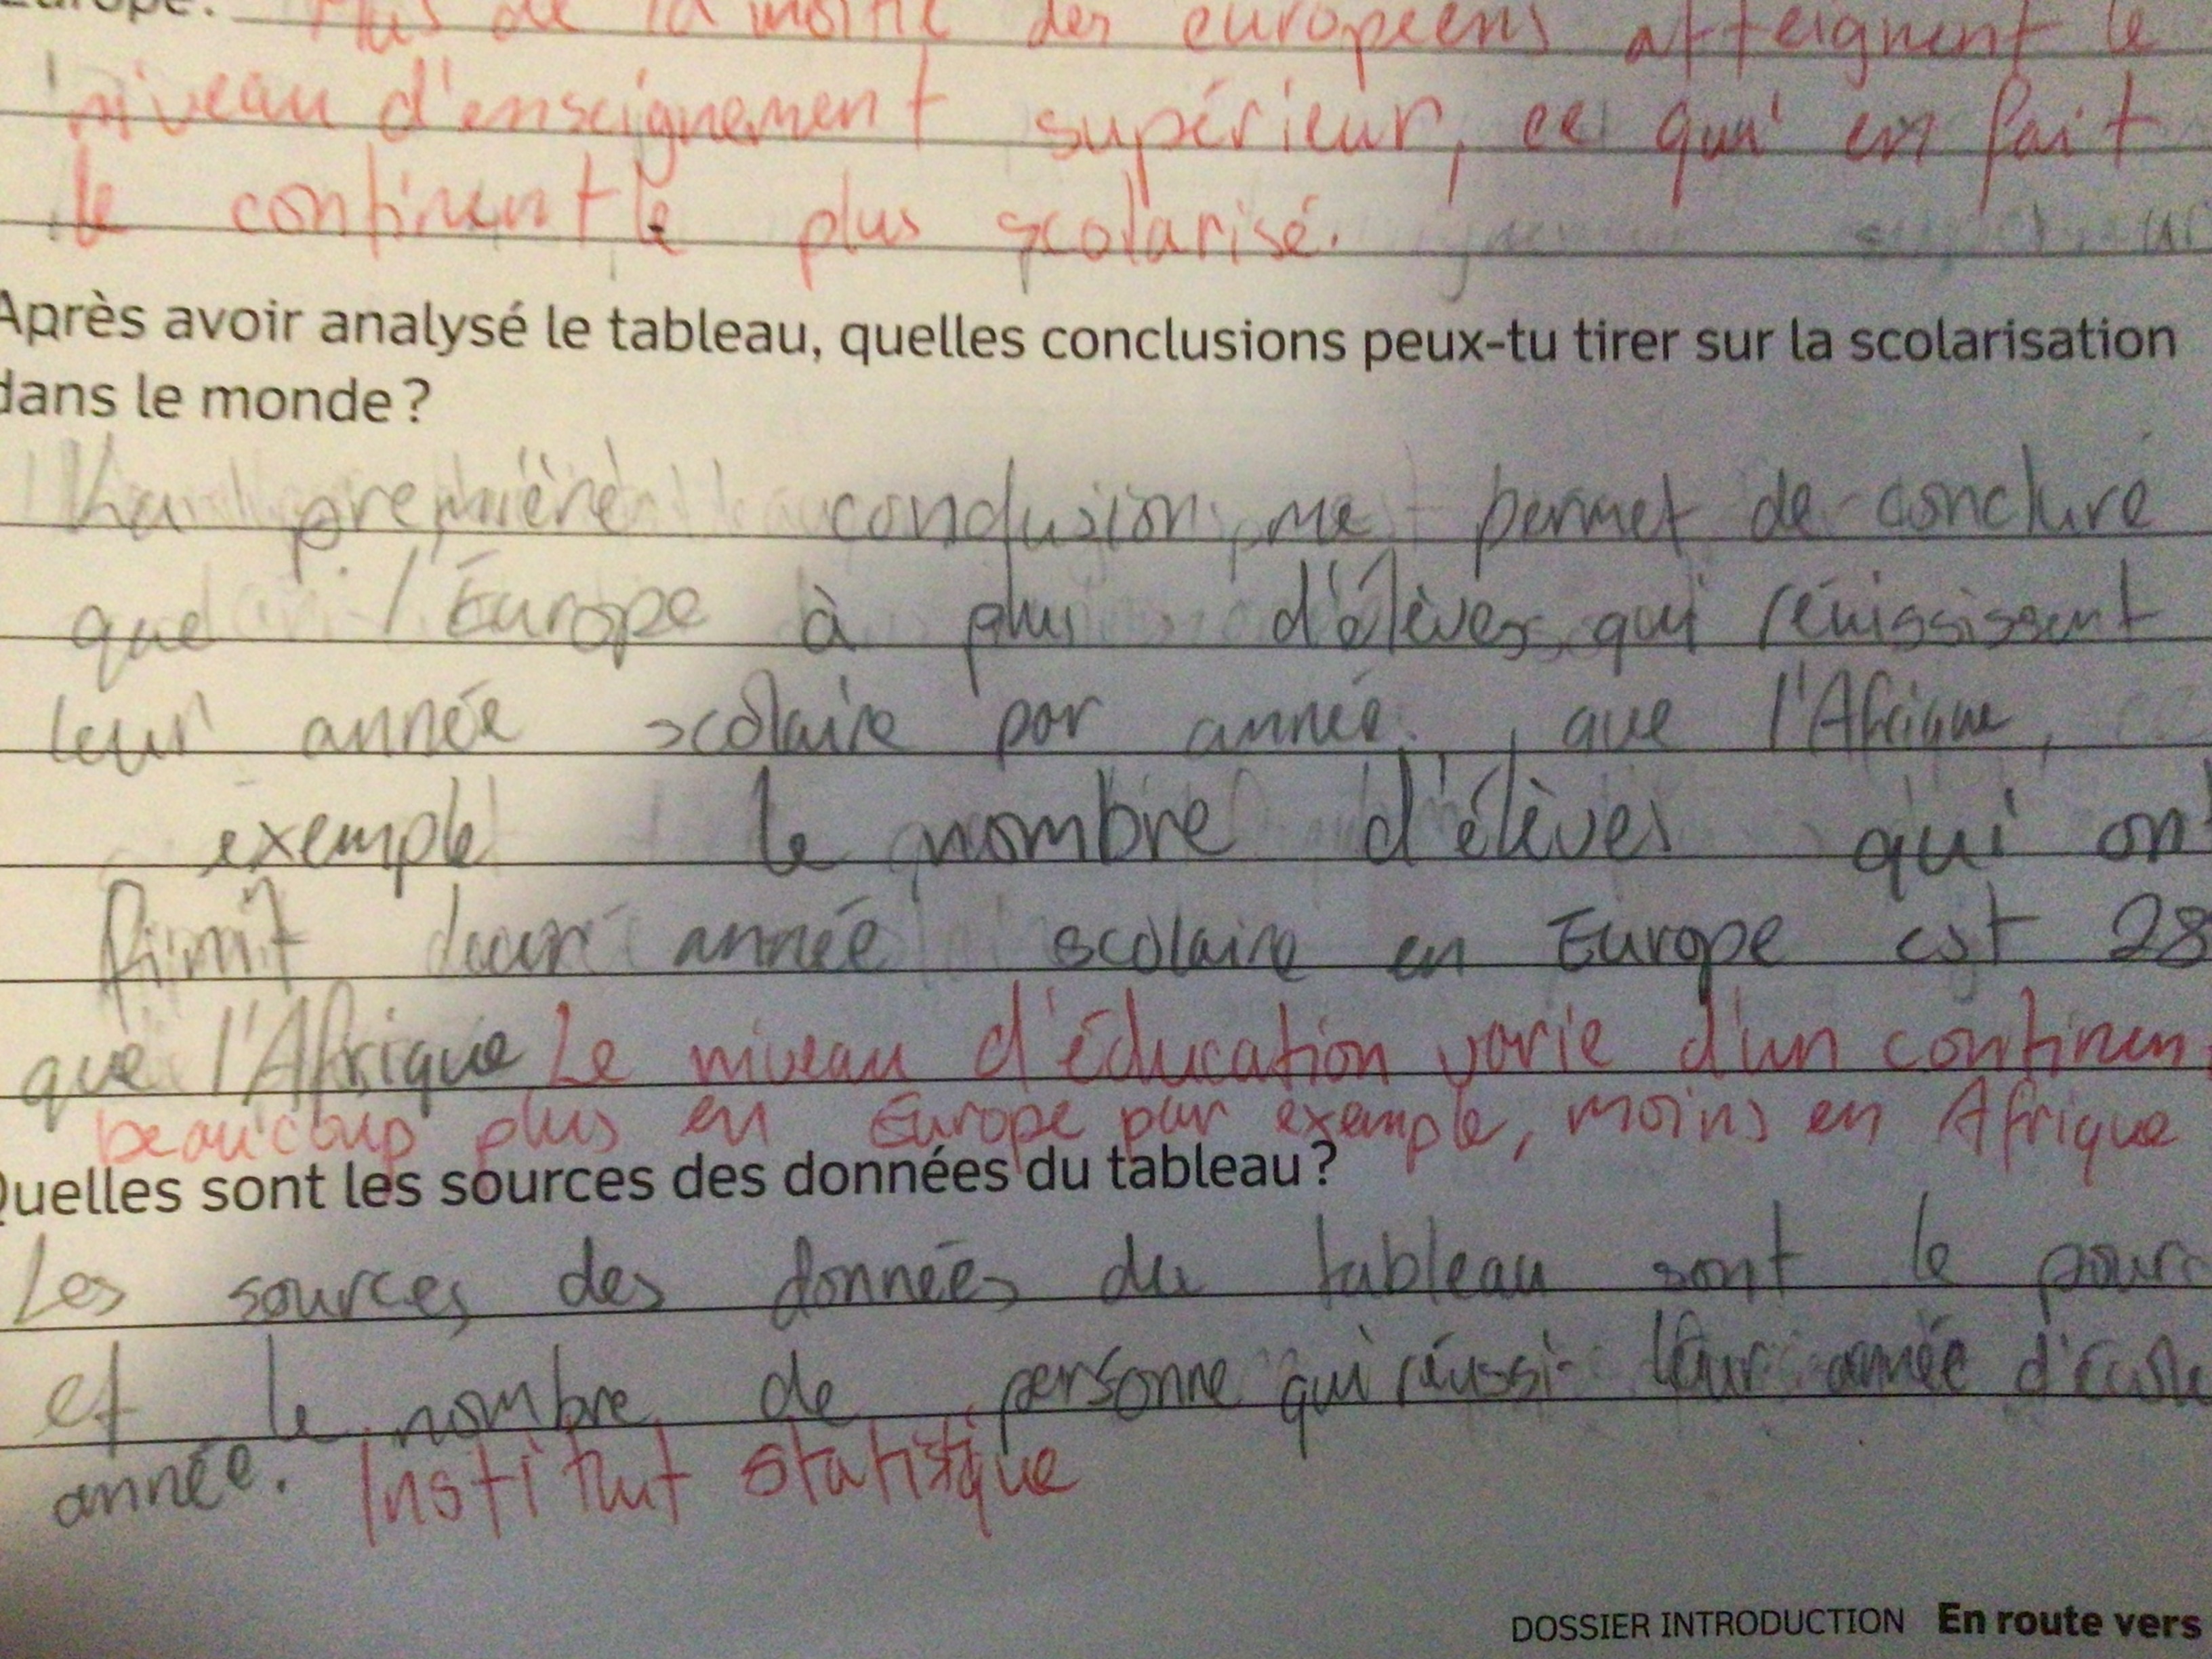 Plus de la moitié des européens atteignent le
niveau d'enseignement supérieur, ce qui en fait
le continent le plus scolarisé.
Après avoir analysé le tableau, quelles conclusions peux-tu tirer sur la scolarisation
dans le monde ?
La première conclusion me permet de conclure
que l'Europe à plus d'élèves qui réuississent
leur année scolaire par année, que l'Afrique,
exemple le nombre d'élèves qui on
finit leur année scolaire en Europe est 28
que l'Afrique Le niveau d'éducation varie d'un continen
beaucoup plus en Europe par exemple, moins en Afrique
Quelles sont les sources des données du tableau ?
Les sources des données du tableau sont le pour
et le nombre de personne qui réussi leur année
année. Institut statistique
DOSSIER INTRODUCTION En route vers